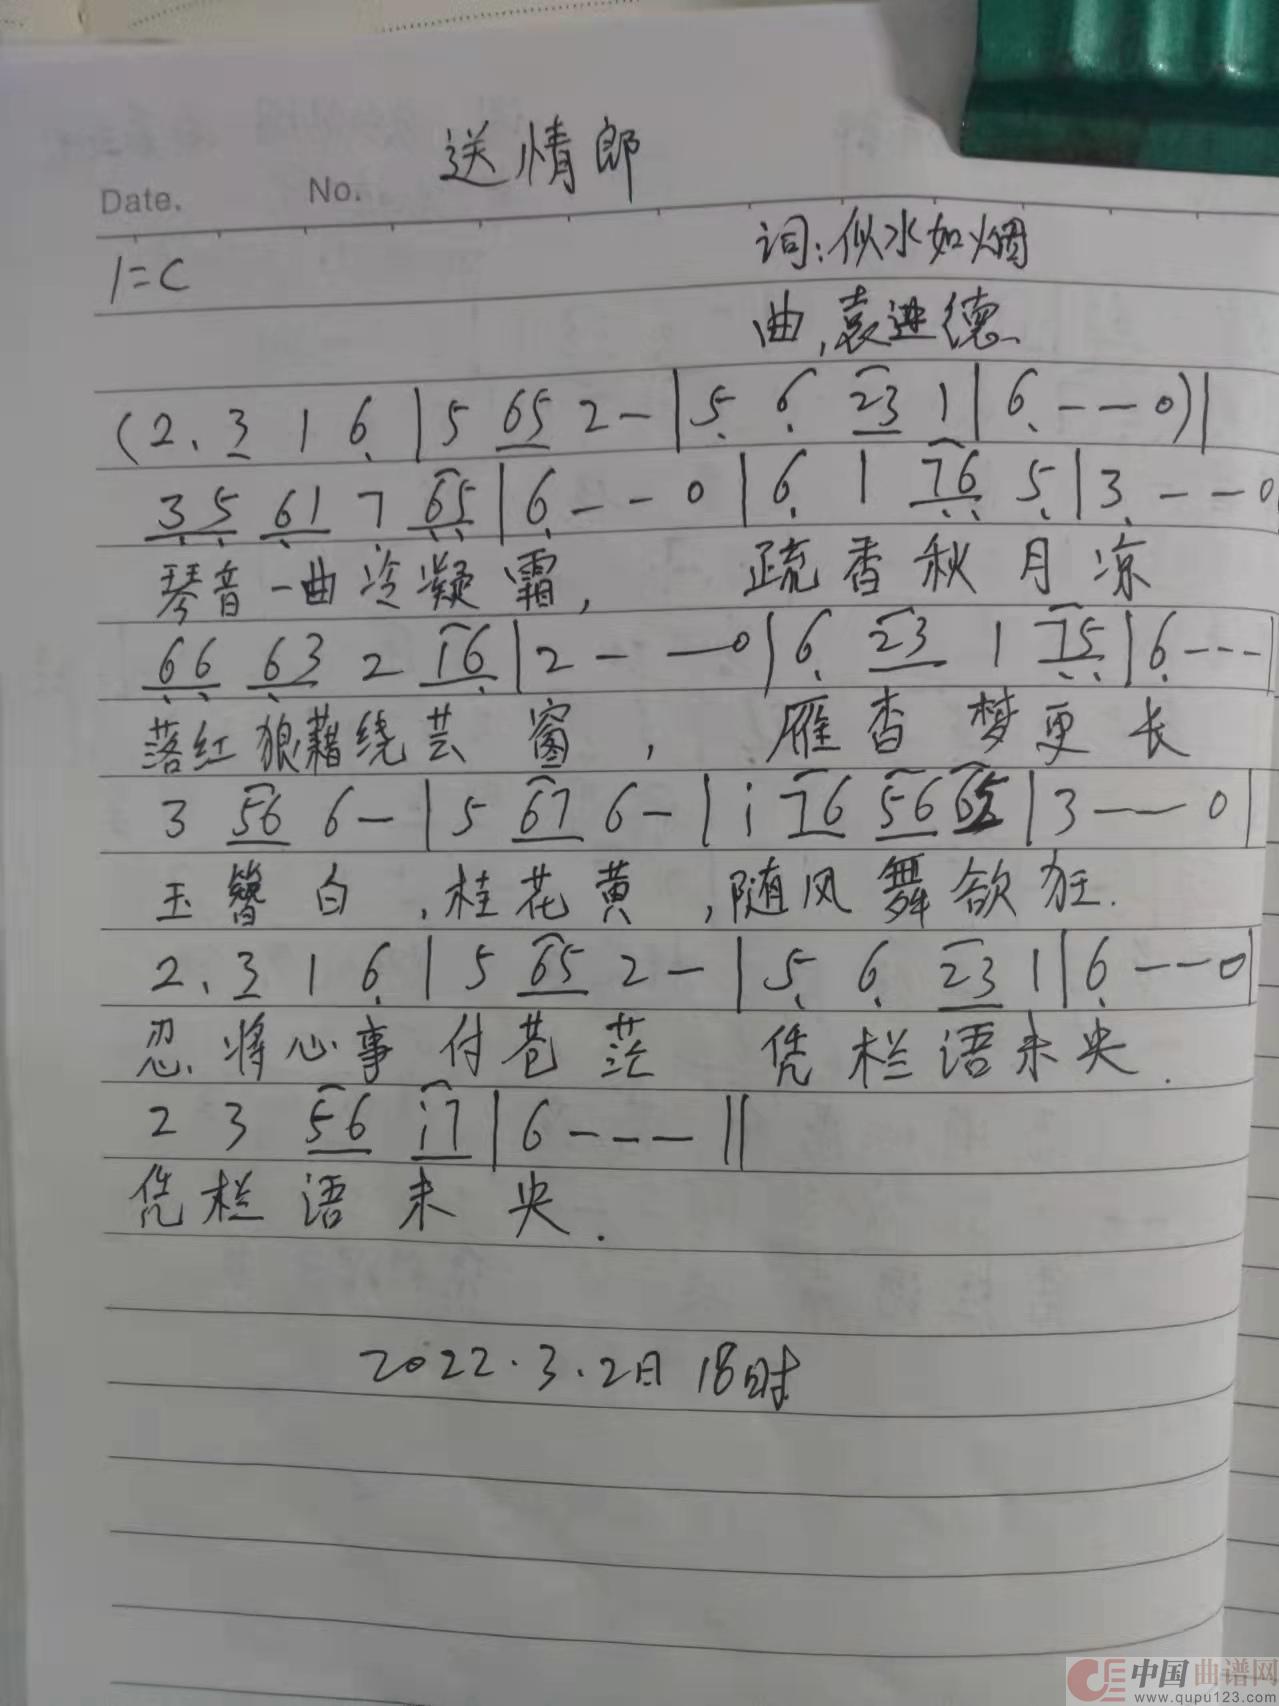 送情郎
Date. No.
1=C
词:似水如烟
曲,袁进德
(2. 3 1 6 | 5 65 2 - | 5 6 23 1 | 6 - - - 0)|
35 61 7 65 | 6 - - 0 | 6 1 76 5 | 3 - - 0
琴音一曲冷凝霜, 疏香秋月凉
66 63 2 16 | 2 - - 0 | 6 23 1 75 | 6 - - - |
落红狼藉绕芸窗, 雁杳梦更长
3 56 6 - | 5 67 6 - | i 76 56 65 | 3 - - 0 |
玉簪白,桂花黄,随风舞欲狂.
2. 3 1 6 | 5 65 2 - | 5 6 23 1 | 6 - - 0 |
忍将心事付苍茫 凭栏语未央.
2 3 56 i7 | 6 - - - ||
凭栏语未央.
2022.3.2日 18时
中国曲谱网
www.qupu123.com